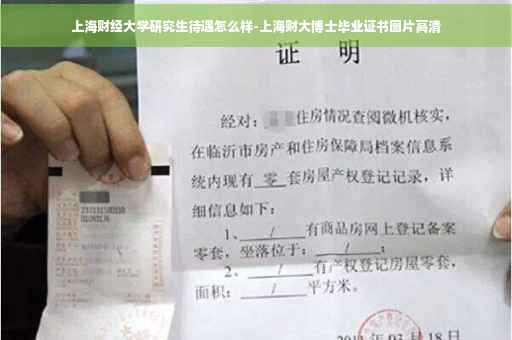 上海财经大学研究生待遇怎么样-上海财大博士毕业证书图片高清
证 明
经对：住房情况查阅微机核实，
在临沂市房产和住房保障局档案信息系
统内现有 零 套房屋产权登记记录，详
细信息如下：
1、 / 有商品房网上登记备案
零套，坐落位于： / ；
2、 / 有产权登记房屋零套，
面积： / 平方米。
03 月 18 日